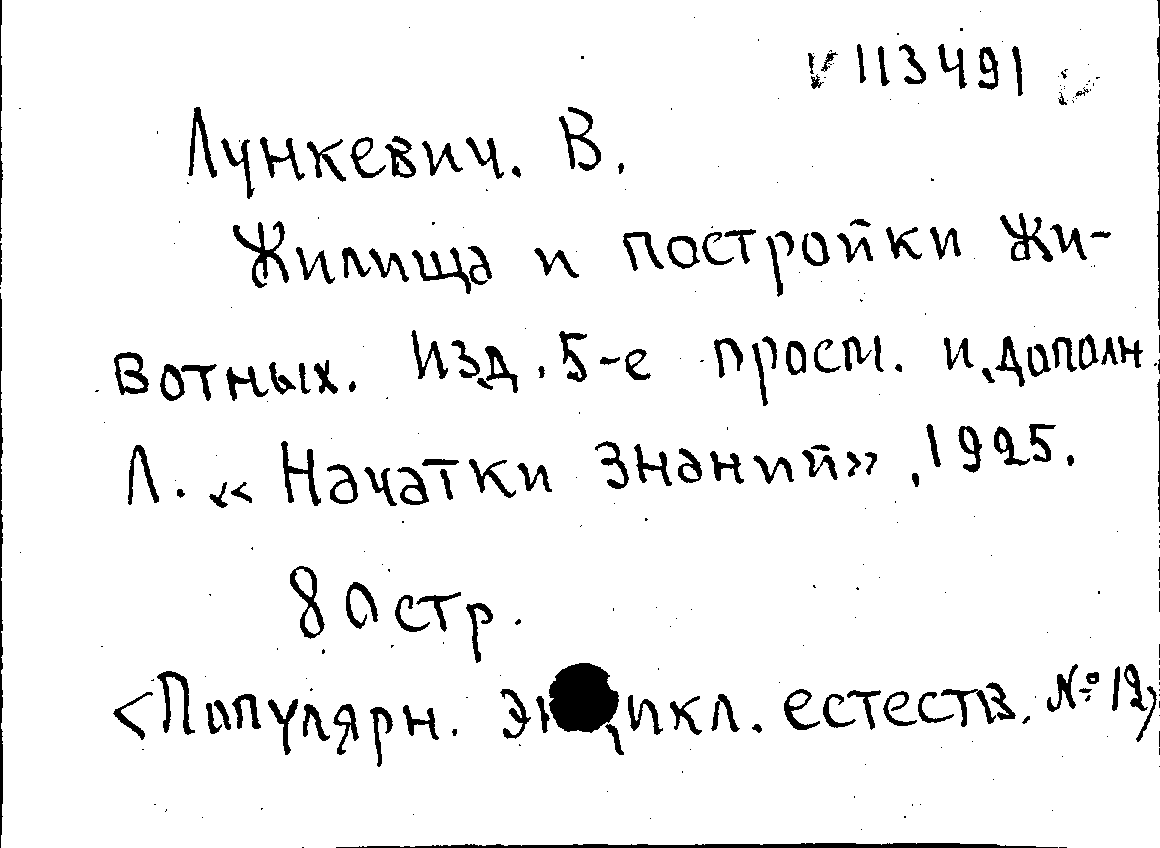 V 113491 V
Лункевич. В.
Жилища и постройки жи-
вотных. Изд. 5-е просм. и дополн.
Л. «Начатки знаний», 1925.
80 стр.
<Популярн. естеств. № 12>